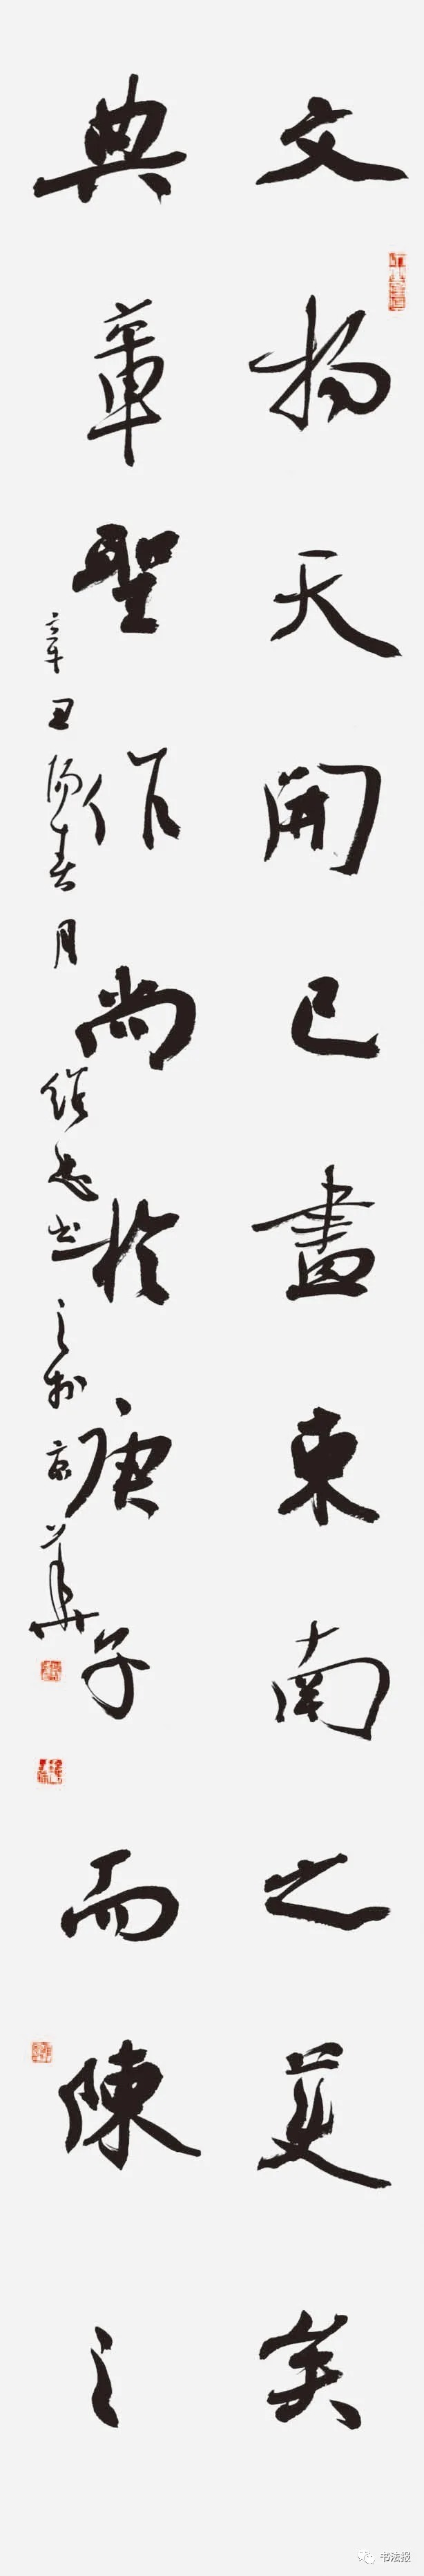 文物天開已盡東南之美矣
典章聖作尚於庚子而陳之
辛丑陽春月 书之於京華
书法报